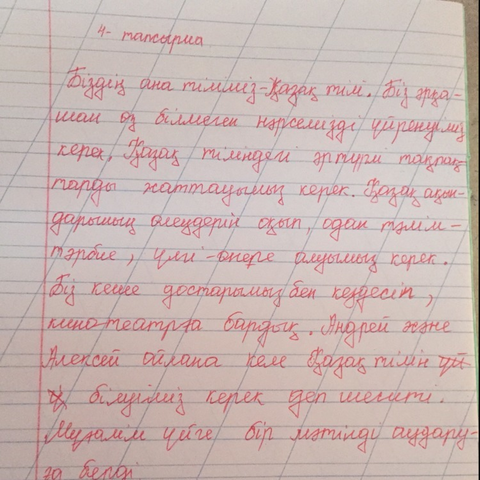 4- тапсырма
Біздің ана тіліміз-Қазақ тілі. Біз әрқа-
шан өз білмеген нәрсемізді үйренуіміз
керек. Қазақ тіліндегі әртүрлі тақпақ-
тарды жаттауымыз керек. Қазақ ақын-
дарының өлеңдерін оқып, одан тәлім-
тәрбие, үлгі-өнеге алуымыз керек.
Біз кеше достарымызбен кездесіп,
кинотеатрға бардық. Андрей және
Алексей ойлана келе Қазақ тілін
білуіміз керек деп шешті.
Мұғалім үйге бір мәтінді аудару-
ға берді